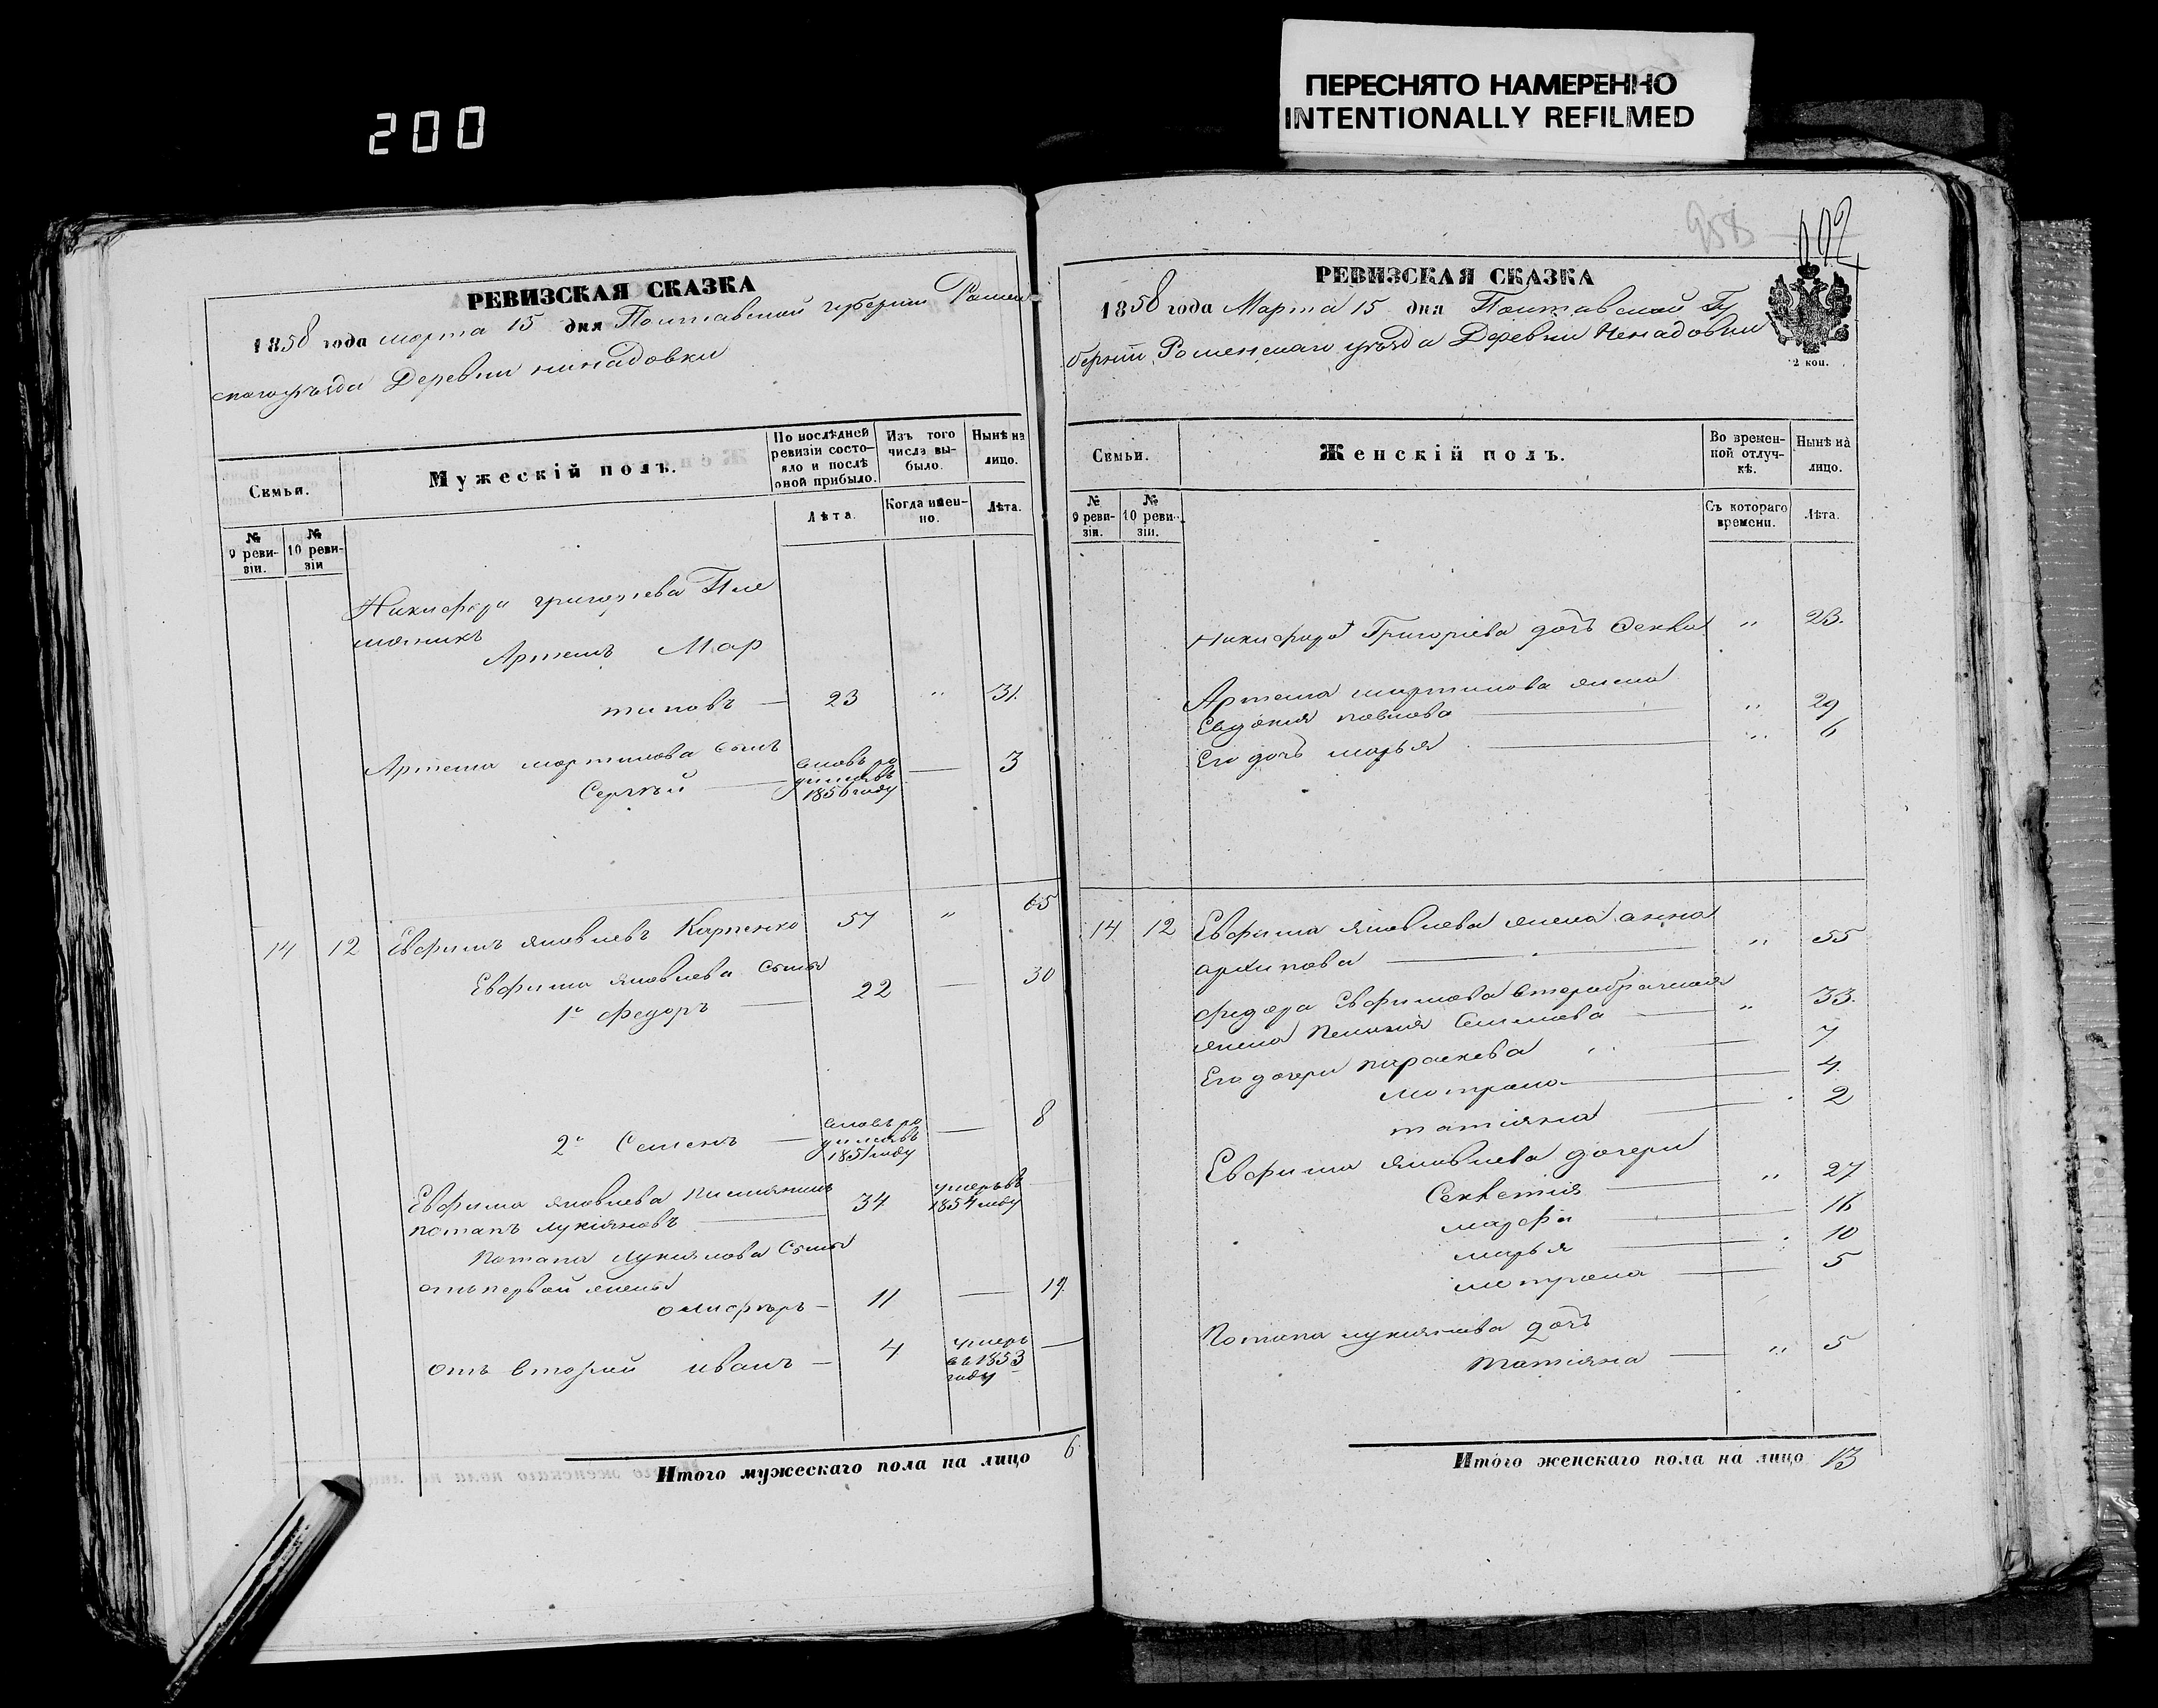 200
ПЕРЕСНЯТО НАМЕРЕННО
INTENTIONALLY REFILMED
РЕВИЗСКАЯ СКАЗКА
1858 года марта 15 дня Полтавской губернии Ромен
скаго уѣзда Деревни нинадовки
Семьи.
Мужескій полъ.
По послѣдней ревизіи состояло и послѣ оной прибыло.
Изъ того числа выбыло.
Нынѣ на лицо.
№ 9 ревизіи.
№ 10 ревизіи
Лѣта.
Когда именно.
Лѣта.
Никифора григориева Пле
мяникъ
Артемъ Мар
тиновъ — 23 " 31.
Артема мартинова сынъ
Сергѣй — вновь ро дился въ 1856 году — 3
14 12 Евфимъ яковлевъ Карпенко 57 " 65
Евфима яковлева сыны
1й федоръ — 22 — 30
2й Семенъ — вновь ро дился въ 1851 году — 8
Евфима яковлева племянникъ
потапъ лукіяновъ — 34 умеръ въ 1854 году —
Потапа лукиянова Сыны
отъ первой жены
олисфиръ — 11 — 19.
отъ второй иванъ — 4 умеръ въ 1853 году —
Итого мужескаго пола на лицо 6
958
192
РЕВИЗСКАЯ СКАЗКА
1858 года Марта 15 дня Полтавской Гу
берніи Роменскаго уѣзда Деревни Ненадовки
2 коп.
Семьи.
Женскій полъ.
Во временной отлучкѣ.
Нынѣ на лицо.
№ 9 ревизіи.
№ 10 ревизіи.
Съ котораго времени.
Лѣта.
Никифора Григоріева дочь Фекла " 23.
Артема мартинова жена
Евдокия павлова — " 29
Его дочь марья — " 6
14 12 Евфима яковлева жена анна
архипова — " 55
федора Евфимова второбрачная
жена Пелагия Семенова — " 33.
Его дочери параскева — 7
мотрона — 4.
татіяна — 2
Евфима яковлева дочери
Секлетия — " 27
марфа — 16
марья — 10
мотрона — 5
Потапа лукиянова дочь
татіяна — " 5
Итого женскаго пола на лицо 13